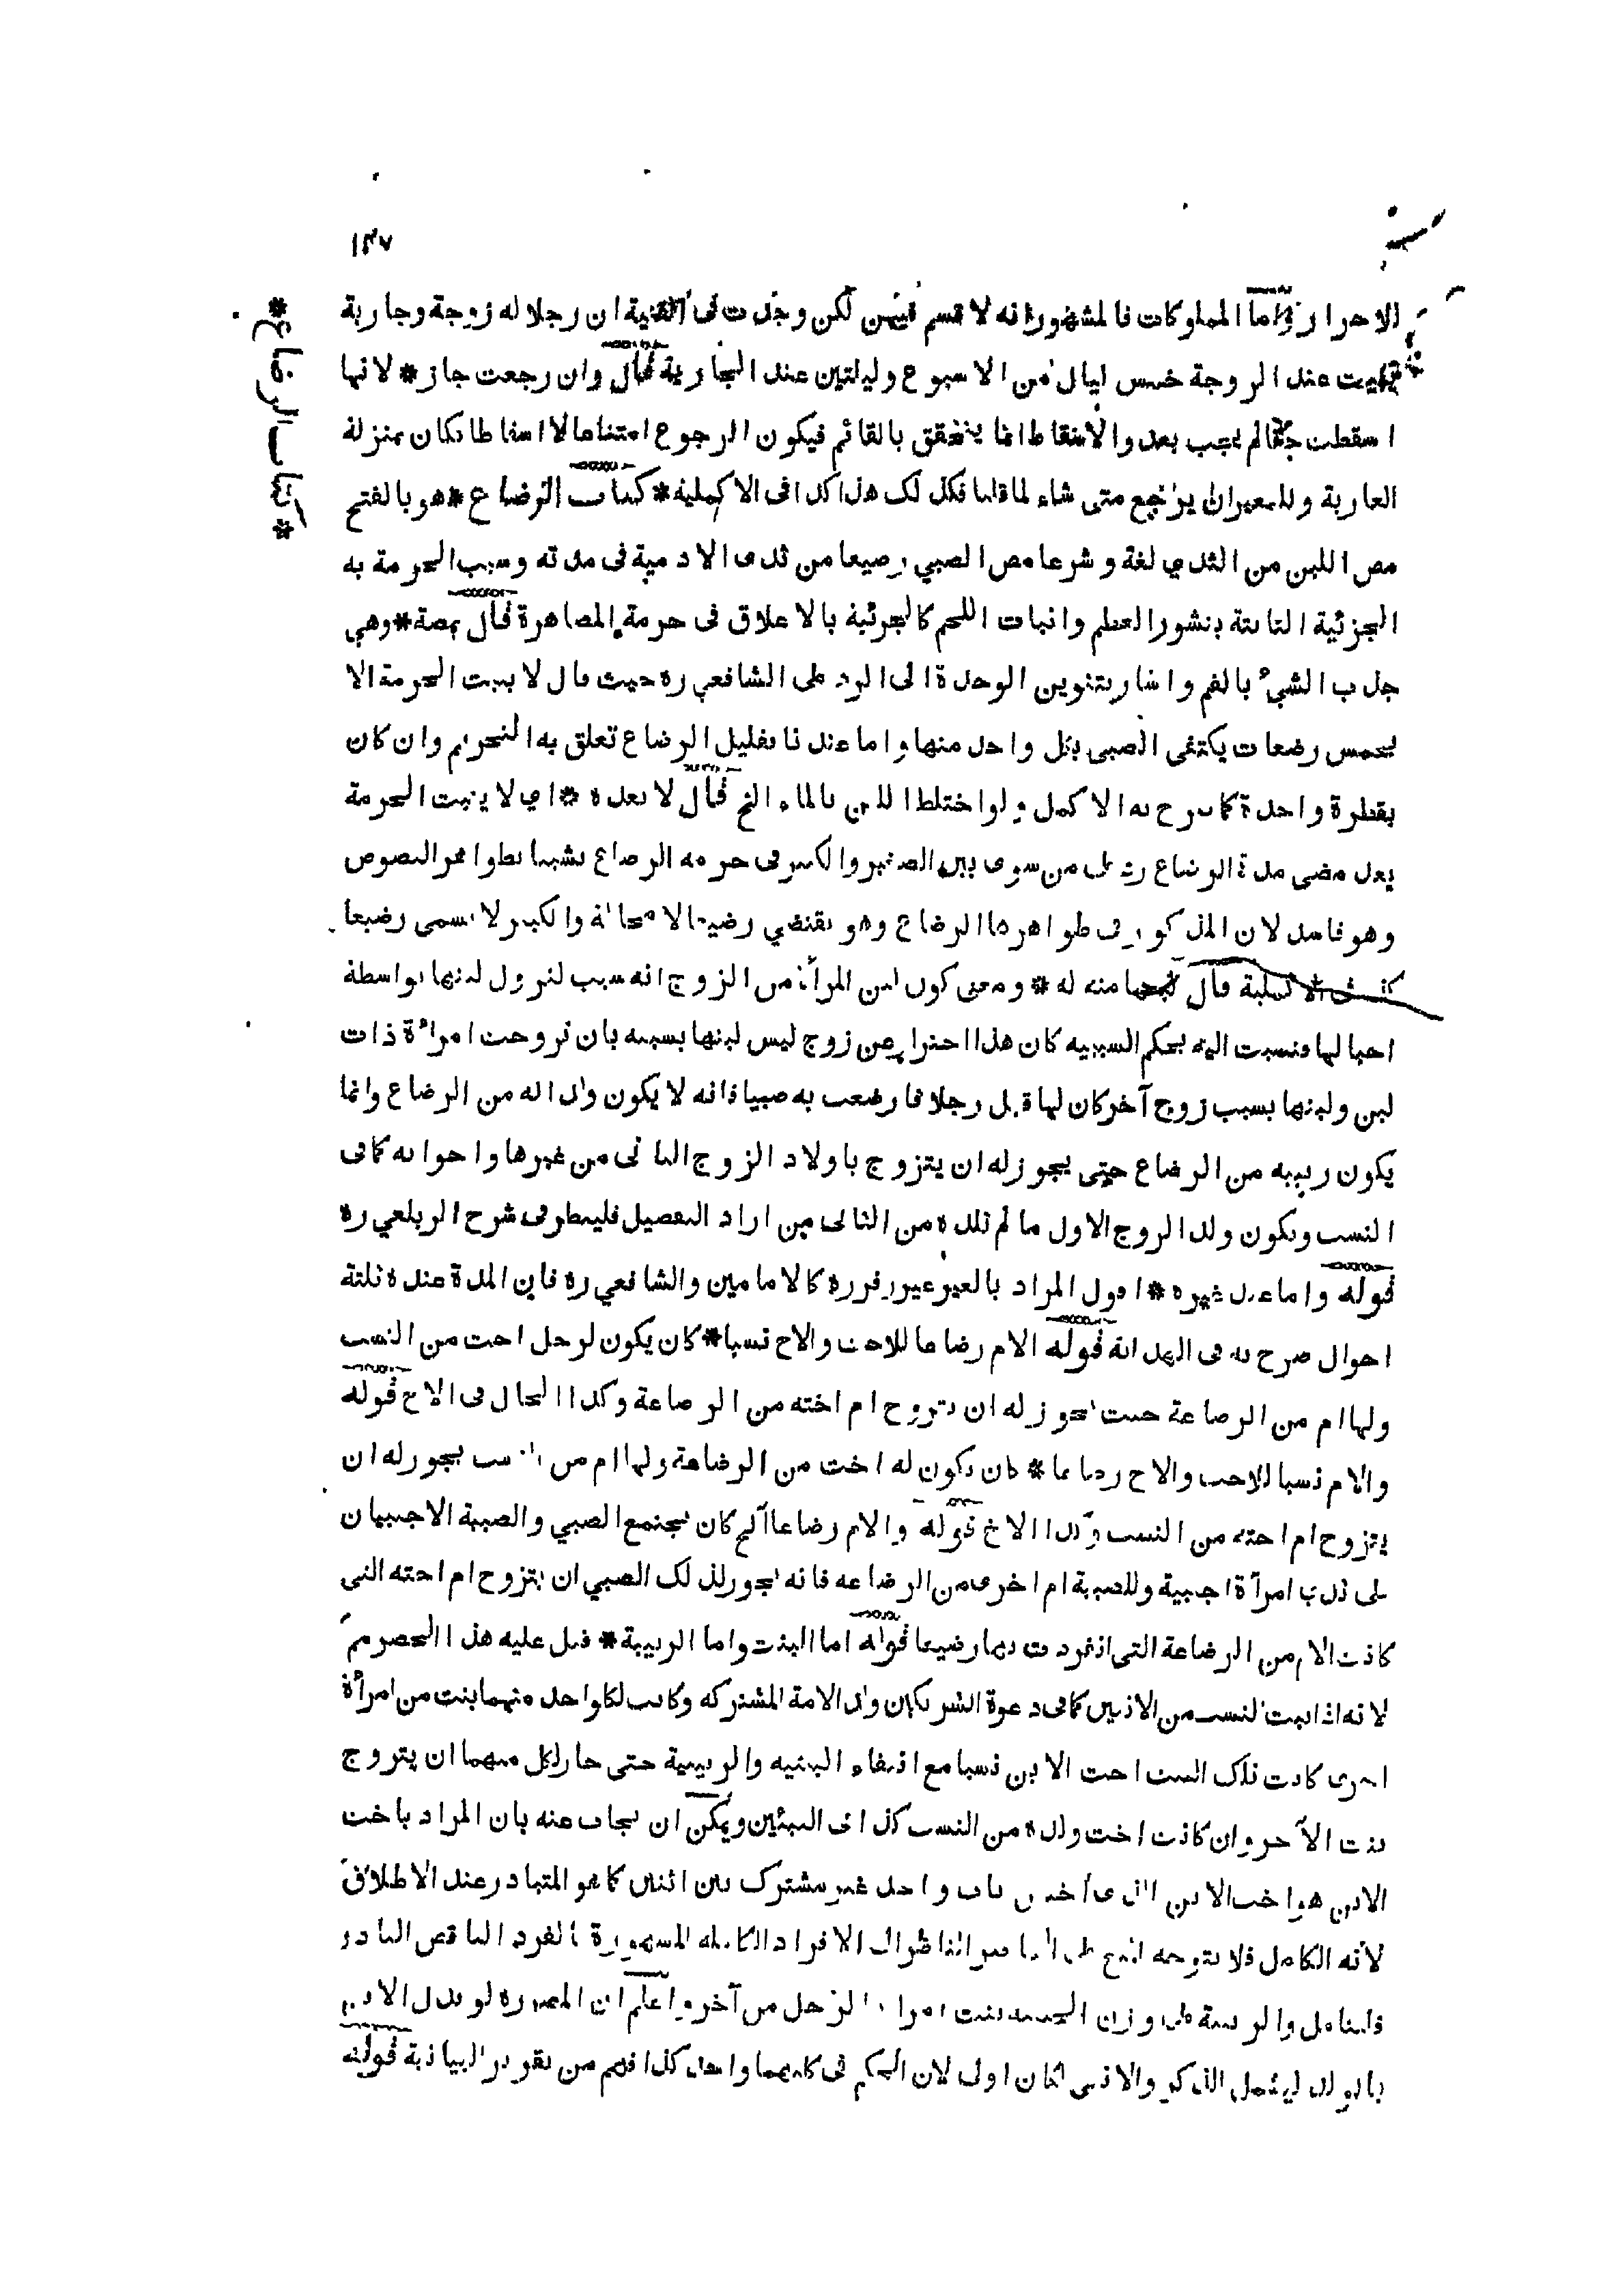 ١٣٧
الاحرار واما المملوكات فالمشهور انه لا قسم فيهن لكن وجدت فى القنية ان رجلا له زوجة وجارية
يبيت عند الزوجة خمس ليال من الاسبوع وليلتين عند الجارية قال وان رجعت جاز * لانها
اسقطت حقا لم يجب بعد والاسقاط انما يتحقق بالقائم فيكون الرجوع امتناعا لا اسقاطا فكان بمنزلة
العارية وللمعير ان يرجع متى شاء لما قلنا فكذلك هذا كذا فى الاكملية * كتاب الرضاع * هو بالفتح
مص اللبن من الثدي لغة وشرعا مص الصبي رضيعا من ثدى الادمية فى مدته وسبب الحرمة به
الجزئية الثابتة بنشور العظم وانبات اللحم كالجزئية بالاعلاق فى حرمة المصاهرة قال بمصة * وهي
جذب الشيء بالفم واشار بتنوين الوحدة الى الرد على الشافعي ره حيث قال لا يثبت الحرمة الا
بخمس رضعات يكتفى الصبى بكل واحد منها واما عندنا فقليل الرضاع تعلق به التحريم وان كان
بقطرة واحدة كما صرح به الاكمل ولو اختلط اللبن بالماء الخ قال لا بعده * اي لا يثبت الحرمة
بعد مضى مدة الرضاع رد على من سوى بين الصغير والكبير فى حرمة الرضاع تشبثا بظواهر النصوص
وهو فاسد لان المذكور فى ظواهرها الرضاع وهو يقتضي رضيعا لا محالة والكبير لا يسمى رضيعا
كذا فى الاكملية قال لبنها منه له * ومعنى كون لبن المرأة من الزوج انه سبب لنزول لبنها بواسطة
احبالها فنسبت اليه بحكم السببيه كان هذا احترازا عن زوج ليس لبنها بسببه بان تزوجت امرأة ذات
لبن ولبنها بسبب زوج آخر كان لها قبل رجلا فارضعت به صبيا فانه لا يكون ولدا له من الرضاع وانما
يكون ربيبه من الرضاع حتى يجوز له ان يتزوج باولاد الزوج الثانى من غيرها واخواته كما فى
النسب ويكون ولد الزوج الاول ما لم تلده من الثانى من اراد التفصيل فلينظر فى شرح الزيلعي ره
قوله واما عند غيره * اقول المراد بالغير غير زفر ره كالامامين والشافعي ره فان المدة عنده ثلثة
احوال صرح به فى الهداية قوله الام رضاعا للاخت والاخ نسبا * كان يكون لرجل اخت من النسب
ولها ام من الرضاعة حيث يجوز له ان يتزوج ام اخته من الرضاعة وكذا الحال فى الاخ قوله
والام نسبا للاخت والاخ رضاعا * كان يكون له اخت من الرضاعة ولها ام من النسب يجوز له ان
يتزوج ام اخته من النسب وكذا الاخ قوله والام رضاعا الخ كان يجتمع الصبي والصبية الاجنبيان
على ثدى امرأة اجنبية وللصبية ام اخرى من الرضاعه فانه يجوز لذلك الصبي ان يتزوج ام اخته التى
كانت الام من الرضاعة التى انفردت بها رضيعا قوله اما البنت واما الربيبة * قيل عليه هذا الحصر مم
لانه اذا اثبت النسب من الاثنين كما فى دعوة الشريكين ولد الامة المشتركه وكانت لكل واحد منهما بنت من امرأة
اخرى كانت تلك البنت اخت الابن نسبا مع انتفاء البنتيه والربيبية حتى جاز لكل منهما ان يتزوج
بنت الآخر وان كانت اخت ولده من النسب كذا فى التبيين ويمكن ان يجاب عنه بان المراد باخت
الابن هو اخت الابن الذى اختص باب واحد غير مشترك بين اثنين كما هو المتبادر عند الاطلاق
لأنه الكامل فلا يتوجه النقض على الحاصر الناظر الى الافراد الكامله المشهورة بالفرد الناقص النادر
فليتامل والربيبة على وزن الحبيبة بنت امرأة الرجل من آخر واعلم ان المصدره لو بدل الابن
بالولد ليشمل الذكر والانثى لكان اولى لان الحكم فى كليهما واحد كذا فهم من تقرير البيانية قوله
* كتاب الرضاع *